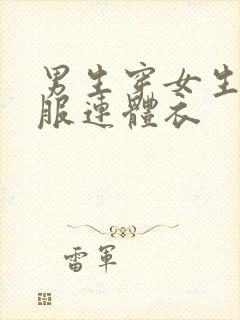 男生穿女生
服連體衣
雷軍